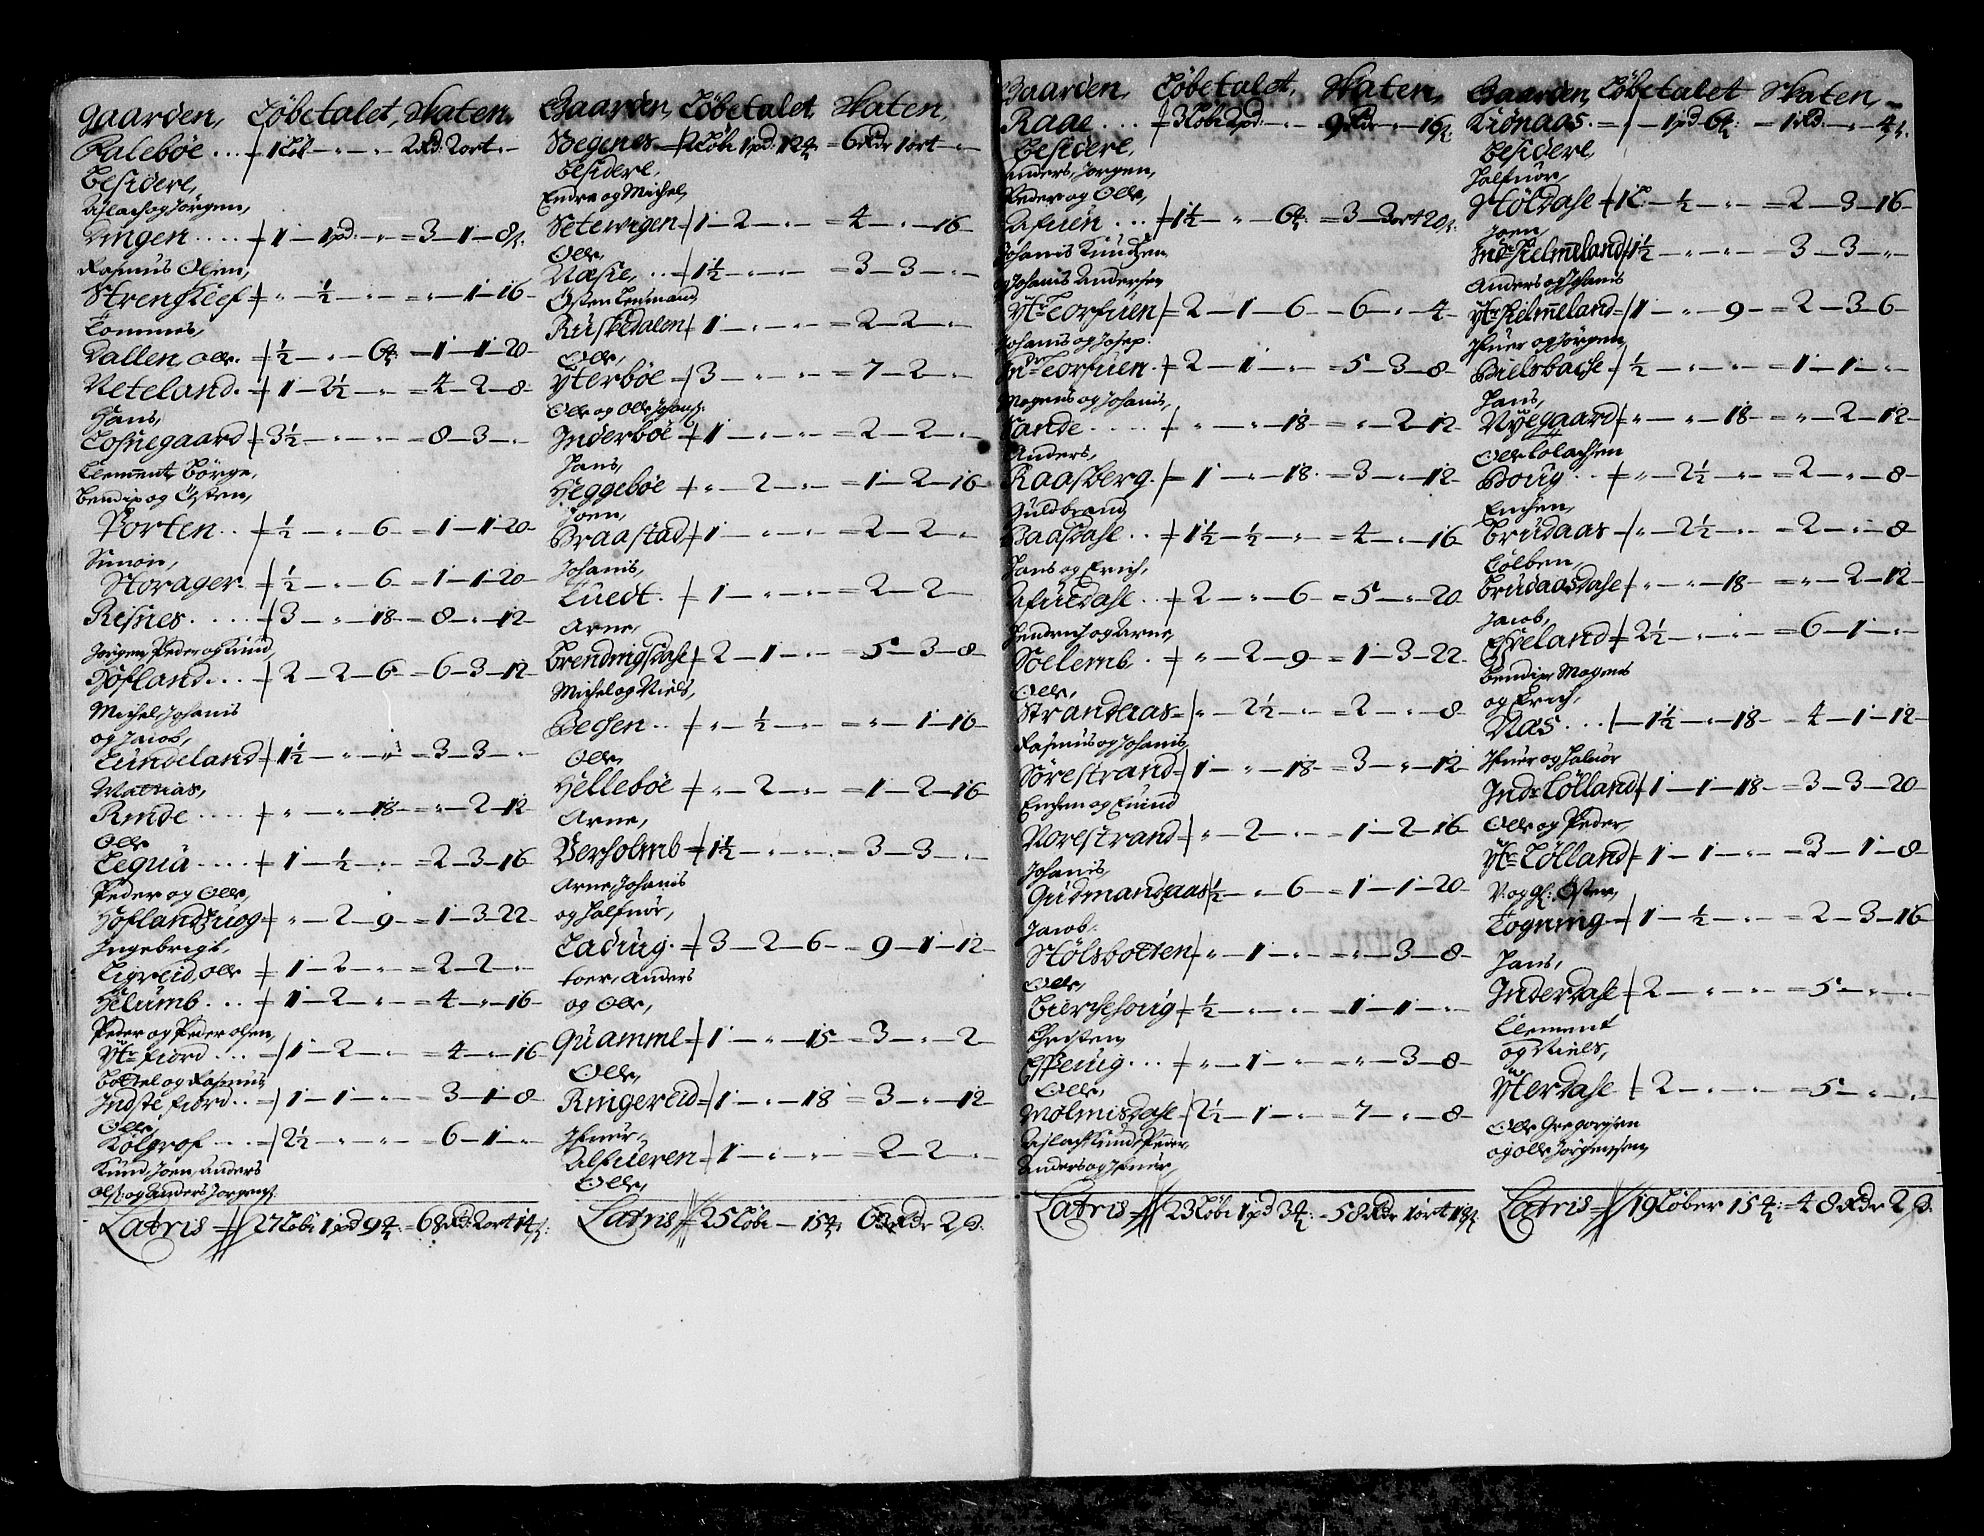 Gaarden, Løbetalet, Skaten,
Falebøe ... 1 Løb - " - " - 2 Rd: 2 ort - "
Besidere,
Aslach og Jørgen,
Vngen .... 1 - 1 pd: - " = 3 - 1 - 8 s.
Rasmus Olsen,
Strenskief " - ½ - " = " - 1 - 16
Tommes,
Dallen, Olle. ½ - " - 6 - 1 - 1 - 20
Neteland. 1 - 2½ - " = 4 - 2 - 8
Hans,
Losnegaard 3½ - " - " = 8 - 3 - "
Clement, Børge,
Bendix og Østen,
Porten .. ½ - " - 6 = 1 - 1 - 20
Simon,
Storager. ½ - " - 6 = 1 - 1 - 20
Risnes .... 3 - " - 18 - 8 - " - 12
Jørgen, Peder og Knud,
Høfland... 2 - 2 - 6 - 6 - 3 - 12
Michel, Johanis
og Jacob,
Lundeland 1½ - " - " = 3 - 3 - "
Mathias,
Rinde .... " - " - 18 = " - 2 - 12
Olle
Leguä .... 1 - ½ - " = 2 - 3 - 16
Peder og Olle,
Høflandzuog " - 2 - 9 = 1 - 3 - 22
Ingebrigt,
Ligreid, Olle 1 - 2 - " = 2 - 2 - "
Hilumb ... 1 - 2 - " = 4 - " - 16
Peder og Peder olsen,
Ytr fiord ... 1 - 2 - " = 4 - " - 16
Bottel og Rasmus
Indste fiord .. 1 - 1 - " = 3 - 1 - 8
Olle,
Kølgrof .... 2½ - " - " = 6 - 1 - "
Knud, Joen, Anders
Ols: og Anders Jørgens:
Latris = 27 Løb: 1 pd 9 = 68 Rd: 2 ort 14 s:
Gaarden, Løbetalet, Skaten,
Søgenes 2 Løb: 1 pd: 12 = 6 Rdr 1 ort - "
Besidere,
Endre og Michel,
Setewigen 1 - 2 - " = 4 - " - 16
Olle,
Næsie, .. 1½ - " - " = 3 - 3 - "
Østen Lensmand
Ruskedalen 1 - " - " = 2 - 2 - "
Olle,
Yterbøe 3 - " - " = 7 - 2 - "
Olle og Olle Johans:
Inderbøe 1 - " - " = 2 - 2 - "
Hans,
Heggebøe " - 2 - " = 1 - 2 - 16
Joen,
Braastad 1 - " - " = 2 - 2 - "
Johanis,
Tuedt. 1 - " - " = 2 - 2 - "
Arne,
Brendingsdahl 2 - 1 - " = 5 - 3 - 8
Michel og Niels,
Bechen .. " - ½ - " = " - 1 - 16
Olle,
Hellebøe " - 2 - " = 1 - 2 - 16
Arne,
Verholmb 1½ - " - " = 3 - 3 - "
Arne, Johanis
og Halfuor,
Ladüig. 3 - 2 - 6 = 9 - 1 - 12
toer, Anders
og Olle,
Quamme 1 - " - 15 = 3 - " - 2
Olle,
Ringereid 1 - " - 18 = 3 - " - 12
Ifuer,
Alfueren 1 - " - " = 2 - 2 - "
Olle,
Latris = 25 Løb: - 15 = 62 Rdr 2 s:
Gaarden, Løbetalet, Skaten,
Raae .... 3 Løb: 2 pd: - " 9 Rdr - " - 16 s.
Besidere,
Anders, Jørgen,
Peder og Olle,
Afuen ... 1½ - " - 6 = 3 - 3 ort 20 s:
Johanis Knudsen
og Johanis Andersen
Ytr Torfuen 2 - 1 - 6 - 6 - " - 4
Johanis og Josep.
Indr Torfuen. 2 - 1 - " = 5 - 3 - 8
Mogens og Johanis,
Sande ..... " - " - 18 = " - 2 - 12
Anders,
Raasberg. 1 - " - 18 = 3 - " - 12
Guldbrand
Baasdahl .. 1½ - ½ - " = 4 - " - 16
Hans og Erich,
Afuedahl .. 2 - " - 6 = 5 - " - 20
Hendrich og Arne,
Solemb .. " - 2 - 9 = 1 - 3 - 22
Olle,
Strandaas " - 2½ - " = 2 - " - 8
Rasmus og Johanis
Sørestrand 1 - " - 18 = 3 - " - 12
Enchen og Eiuind
Norestrand " - 2 - " = 1 - 2 - 16
Johanis,
Gudmandaas ½ - " - 6 = 1 - 1 - 20
Jacob,
Stølsbotten " - 1 - " = " - 3 - 8
Olle,
Bierchehoug ½ - " - " = 1 - 1 - "
Christen,
Espeuig ... " - 1 - " = " - 3 - 8
Olle,
Mølmisdahl 2½ - 1 - " = 7 - " - 8
Aslach Knud, Peder,
Anders og Ifuer,
Latris 23 Løb: 1 pd 3 - 58 Rdr 1 ort 18 s
Gaarden, Løbetalet Skaten,
Kiønaas. = " - 1 pd 6 : - 1 Rd: - " - 4 s.
Besidere,
Halfuor,
Støldahl 1 L: - ½ - " = 2 - 3 - 16
Joen,
Indr Hielmeland 1½ - " - " = 3 - 3 - "
Anders og Johanis
Ytr Hielmeland 1 - " - 9 = 2 - 3 - 6
Ifuer og Jørgen,
Bielsbache ½ - " - " = 1 - 1 - "
Hans,
Nyegaard " - " - 18 = " - 2 - 12
Olle Tolachsen
Houg .. " - 2½ - " = 2 - " - 8
Enchen,
Brudaas " - 2½ - " = 2 - " - 8
Tolben,
Brudaasdahl " - " - 18 = " - 2 - 12
Jacob,
Espeland 2½ - " - " = 6 - 1 - "
Bendix, Mogens
og Erich,
Naas. .. 1½ - " - 18 - 4 - 1 - 12
Ifuer og Haluor
Indr Lølland 1 - 1 - 18 = 3 - 3 - 20
Olle og Peder,
Ytr Lølland 1 - 1 - " = 3 - 1 - 8
V. og gl: Østen,
Togning 1 - ½ - " = 2 - 3 - 16
Hans,
Inderdahl 2 - " - " = 5 - " - "
Clement
og Niels,
Yterdahl 2 - " - " = 5 - " - "
Olle Gregorisen
og olle Jørgensen,
Latris 19 Løber 15 = 48 Rdr 2 s.